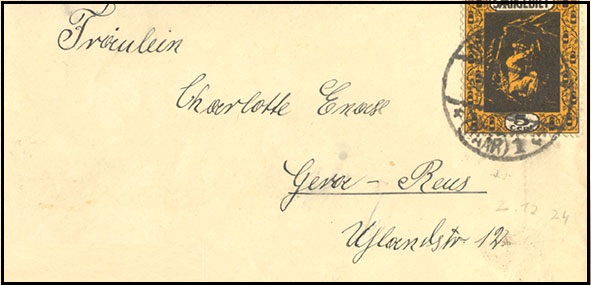 SAARGEBIET
Fräulein
Charlotte Enase
Gera - Reus
Uhlandstr. 12
2.12 24
5
(SAAR) 1